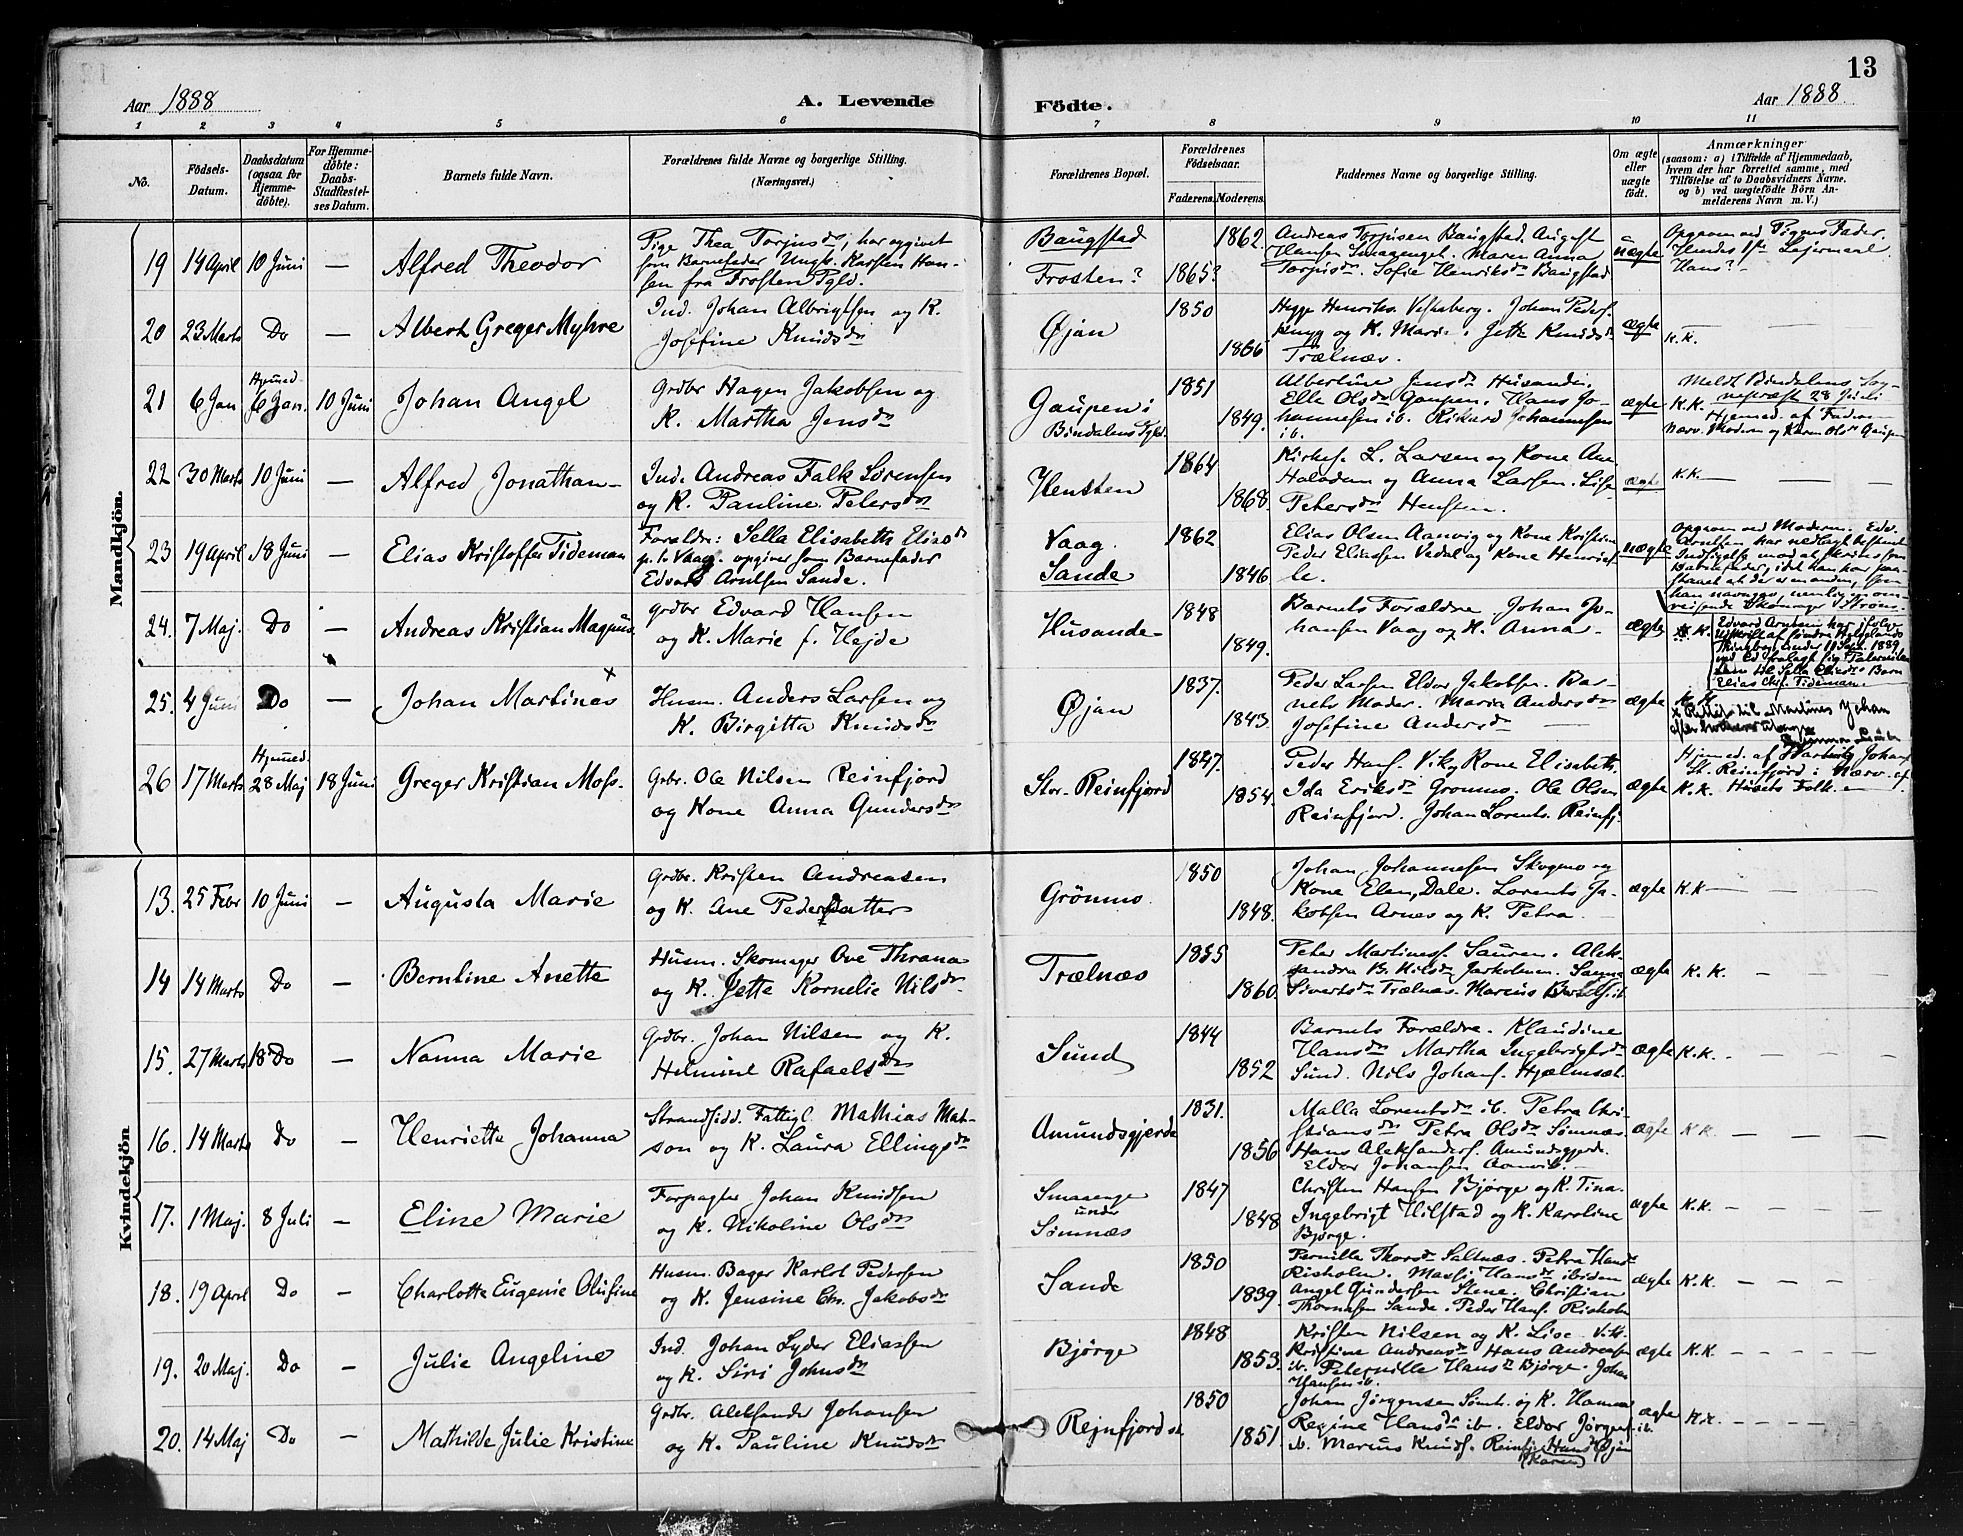 13
Aar 1888
A. Levende
Födte.
Aar 1888.
1 2 3 4 5 6 7 8 9 10 11
No.
Födsels-
Datum.
Daabsdatum
(ogsaa for
Hjemme-
döbte).
For Hjemme-
döbte:
Daabs-
Stadfæstel-
ses Datum.
Barnets fulde Navn.
Forældrenes fulde Navne og borgerlige Stilling.
(Næringsvei.)
Forældrenes Bopæl.
Forældrenes
Födselsaar.
Faderens.
Moderens.
Faddernes Navne og borgerlige Stilling.
Om ægte
eller
uægte
födt.
Anmærkninger
(saasom: a) i Tilfælde af Hjemmedaab,
hvem der har forrettet samme, med
Tilföielse af to Daabsvidners Navne,
og b) ved uægtefödte Börn An-
melderens Navn m. V.)
Mandkjön.
19 14 April 10 Juni — Alfred Theodor
Pige Thea Torjusdr, har opgivet
som Barnefader Ungk. Karsten Han-
sen fra Trosten Pgld.
Baugstad
Frosten?
1862.
1865?
Andreas Torjusen Baugstad. August
Hansen Smaaenget. Maren Anna
Torjusdr. Sofie Henriksdr Baugstad
uægte
Opgivm ved Pigens Fader.
Hendes 1ste Leiermaal
Hans? —
20 23 Marts Do — Albert Greger Myhre
Ind. Johan Albrigtsen og K.
Josefine Knudsdr
Øjan
1850
1866
Hegge Henriks. Johan Peders.
og K. Marie. Jette Knudsdr
Trælnæs.
ægte
K.K.
21 6 Jan Hjemmed. 6 Jan. 10 Juni Johan Angel
Grdbr Hagen Jakobsen og
K. Martha Jensdr
Gaupen i
Bindalens Pgld.
1851
1849.
Albertine Jensdr Husande.
Elle Olsdr Gaupen. Hans Jo-
hannesen ib. Rikard Johannesen
ib.
ægte
Meldt Bindalens Sog-
nepræst 28 Juli
K.K. Hjemmed. af Faderen
Nærv. Moderen og Karen Olsdr Gaupen
22 30 Marts 10 Juni — Alfred Jonathan
Ind. Andreas Falk Sörensen
og K. Pauline Petersdr
Hensten
1864
1868.
Kirkes. L. Larsen og Kone Ane
og Anna Larsen. Lise
Petersdr Hensten.
ægte
K.K. — — —
23 19 April 18 Juni — Elias Kristoffer Tideman
Forældre: Sella Elisabeth Eliasdr
p. t. Vaag. opgiver som Barnefader
Edvard Arntsen Sande.
Vaag.
Sande
1862
1846
Elias Olsen Aanvig og Kone Kristine
Peder Eliassen Vedal og Kone Henriet-
te.
uægte
Opgivm ved Moderen. Edv.
Arntsen har nedlagt bestemt
Indsigelse mod at skrives som
Barnefader, idet han har paa-
staaet at der er en anden, som
han navngav, nemlig en om-
reisende Skomager Ström.
Edvard Arntsen har ifölge
Udskrift af Söndre Helgelands
Thingbog under 19 Sept. 1889
ved Ed fralagt sig Paternite-
ten til Sella Eliasdr Barn
Elias Chr. Tideman.
24. 7 Maj. Do — Andreas Kristian Magnus.
Grdbr Edvard Hansen
og K. Marie f. Hejde
Husande
1848
1849.
Barnets Forældre. Johan Jo-
hansen Vaag og K. Anna —
ægte
K.K.
25. 4 Juni Do — Johan Martines x
Husm. Anders Larsen og
K. Birgitta Knudsdr
Øjan
1837.
1843.
Peder Larsen Eldor Jakobsen. Bar-
nets Moder. Maria Andersdr
Josefine Andersdr —
ægte
K.K.
x Rettet til Martines Johan
26 17 Marts Hjemmed. 28 Maj 18 Juni Greger Kristian Moss.
Grbr. Ole Nilsen Reinfjord
og Kone Anna Gundersdr
Stor-Reinfjord
1847.
1854.
Peder Hans. Vik og Kone Elisabeth.
Ida Eriksdr Grönmo. Ole Olsen
Reinfjord. Johan Lorents. Reinfj.
ægte
Hjemmed. af Hartvig Johans.
St. Reinfjord i Nærv. af
K.K. Husets Folk. —
Kvindekjön
13. 25 Febr 10 Juni — Augusta Marie
Grdbr. Kristen Andreasen
og K. Ane Pedersdatter
Grönmo.
1850
1848.
Johan Johannesen Skogmo og
Kone Elen, Dale. Lorents Ja-
kobsen Arnes og K. Petra. —
ægte
K.K — — —
14 14 Marts Do — Berntine Anette
Husm. Skomager Ove Thrana
og K. Jette Kornelie Nilsdr
Trælnæs
1855
1860.
Peter Martines. Sauren. Alek-
sandra B. Nilsdr Jarholmen. Sanna
Sivertsdr Trælnæs. Marcus Bertels. ib.
ægte
K.K. — — —
15. 27 Marts 18 Do — Nanna Marie
Grdbr. Johan Nilsen og K.
Helmine Rafaelsdr
Sund
1844
1852
Barnets Forældre. Klaudine
Hansdr Martha Ingebrigtsdr
Sund. Nils Johans. Hjælmsæt.
ægte
K.K. — — —
16. 14 Marts Do — Henriette Johanna
Strandsidd. Fattigl. Mathias Mat-
son og K. Laura Ellingsdr
Amundsgjerde
1831.
1856
Malla Lorentsdr ib. Petra Chri-
stiansdr Petra Olsdr Sömnæs.
Hans Aleksanders. Amundsgjerde.
Eldor Johansen Aanvik. —
ægte
K.K. — — —
17. 1 Maj. 8 Juli — Eline Marie
Forpagter Johan Knudsen
og K. Nikoline Olsdr
Smaaenge
under
Sömnæs
1847
1848
Christen Hansen Bjørge og K. Tina.
Ingebrigt Hilstad og K. Karoline
Bjørge.
ægte
K.K. — — —
18. 19 April Do — Charlotte Eugenie Olufine
Husm. Bager Karlot Pedersen
og K. Jensine Chr. Jakobsdr
Sande
1850
1839.
Pernille Thorsdr Saltnæs. Petra Hansdr
Risholm. Massi Hansdr ibidem
Angel Gundersen Stene. Christian
Thornesen Sande. Peder Hans. Risholm
ægte
K.K. — — —
19. 20 Maj. Do — Julie Angeline
Ind. Johan Lyder Eliassen
og K. Siri Johnsdr
Bjørge
1848
1853.
Kristen Nilsen og K. Lise Vik.
Kristine Andreasdr Hans Andreasen
ib. Peternille Hansdr Bjørge. Johan
Hansen ib.
ægte
K.K. — — —
20. 14 Maj Do — Mathilde Julie Kristine
Grdbr. Aleksander Johansen
og K. Pauline Knudsdr
Rejnfjord st.
1850
1851.
Johan Jörgensen Sömh. og K. Hanna
Regine Hansdr ib. Eldor Jörgens. ib.
ib. Marcus Knuds. Reinfj. Hansdr Øjan
(Karen)
ægte
K.K. — — —